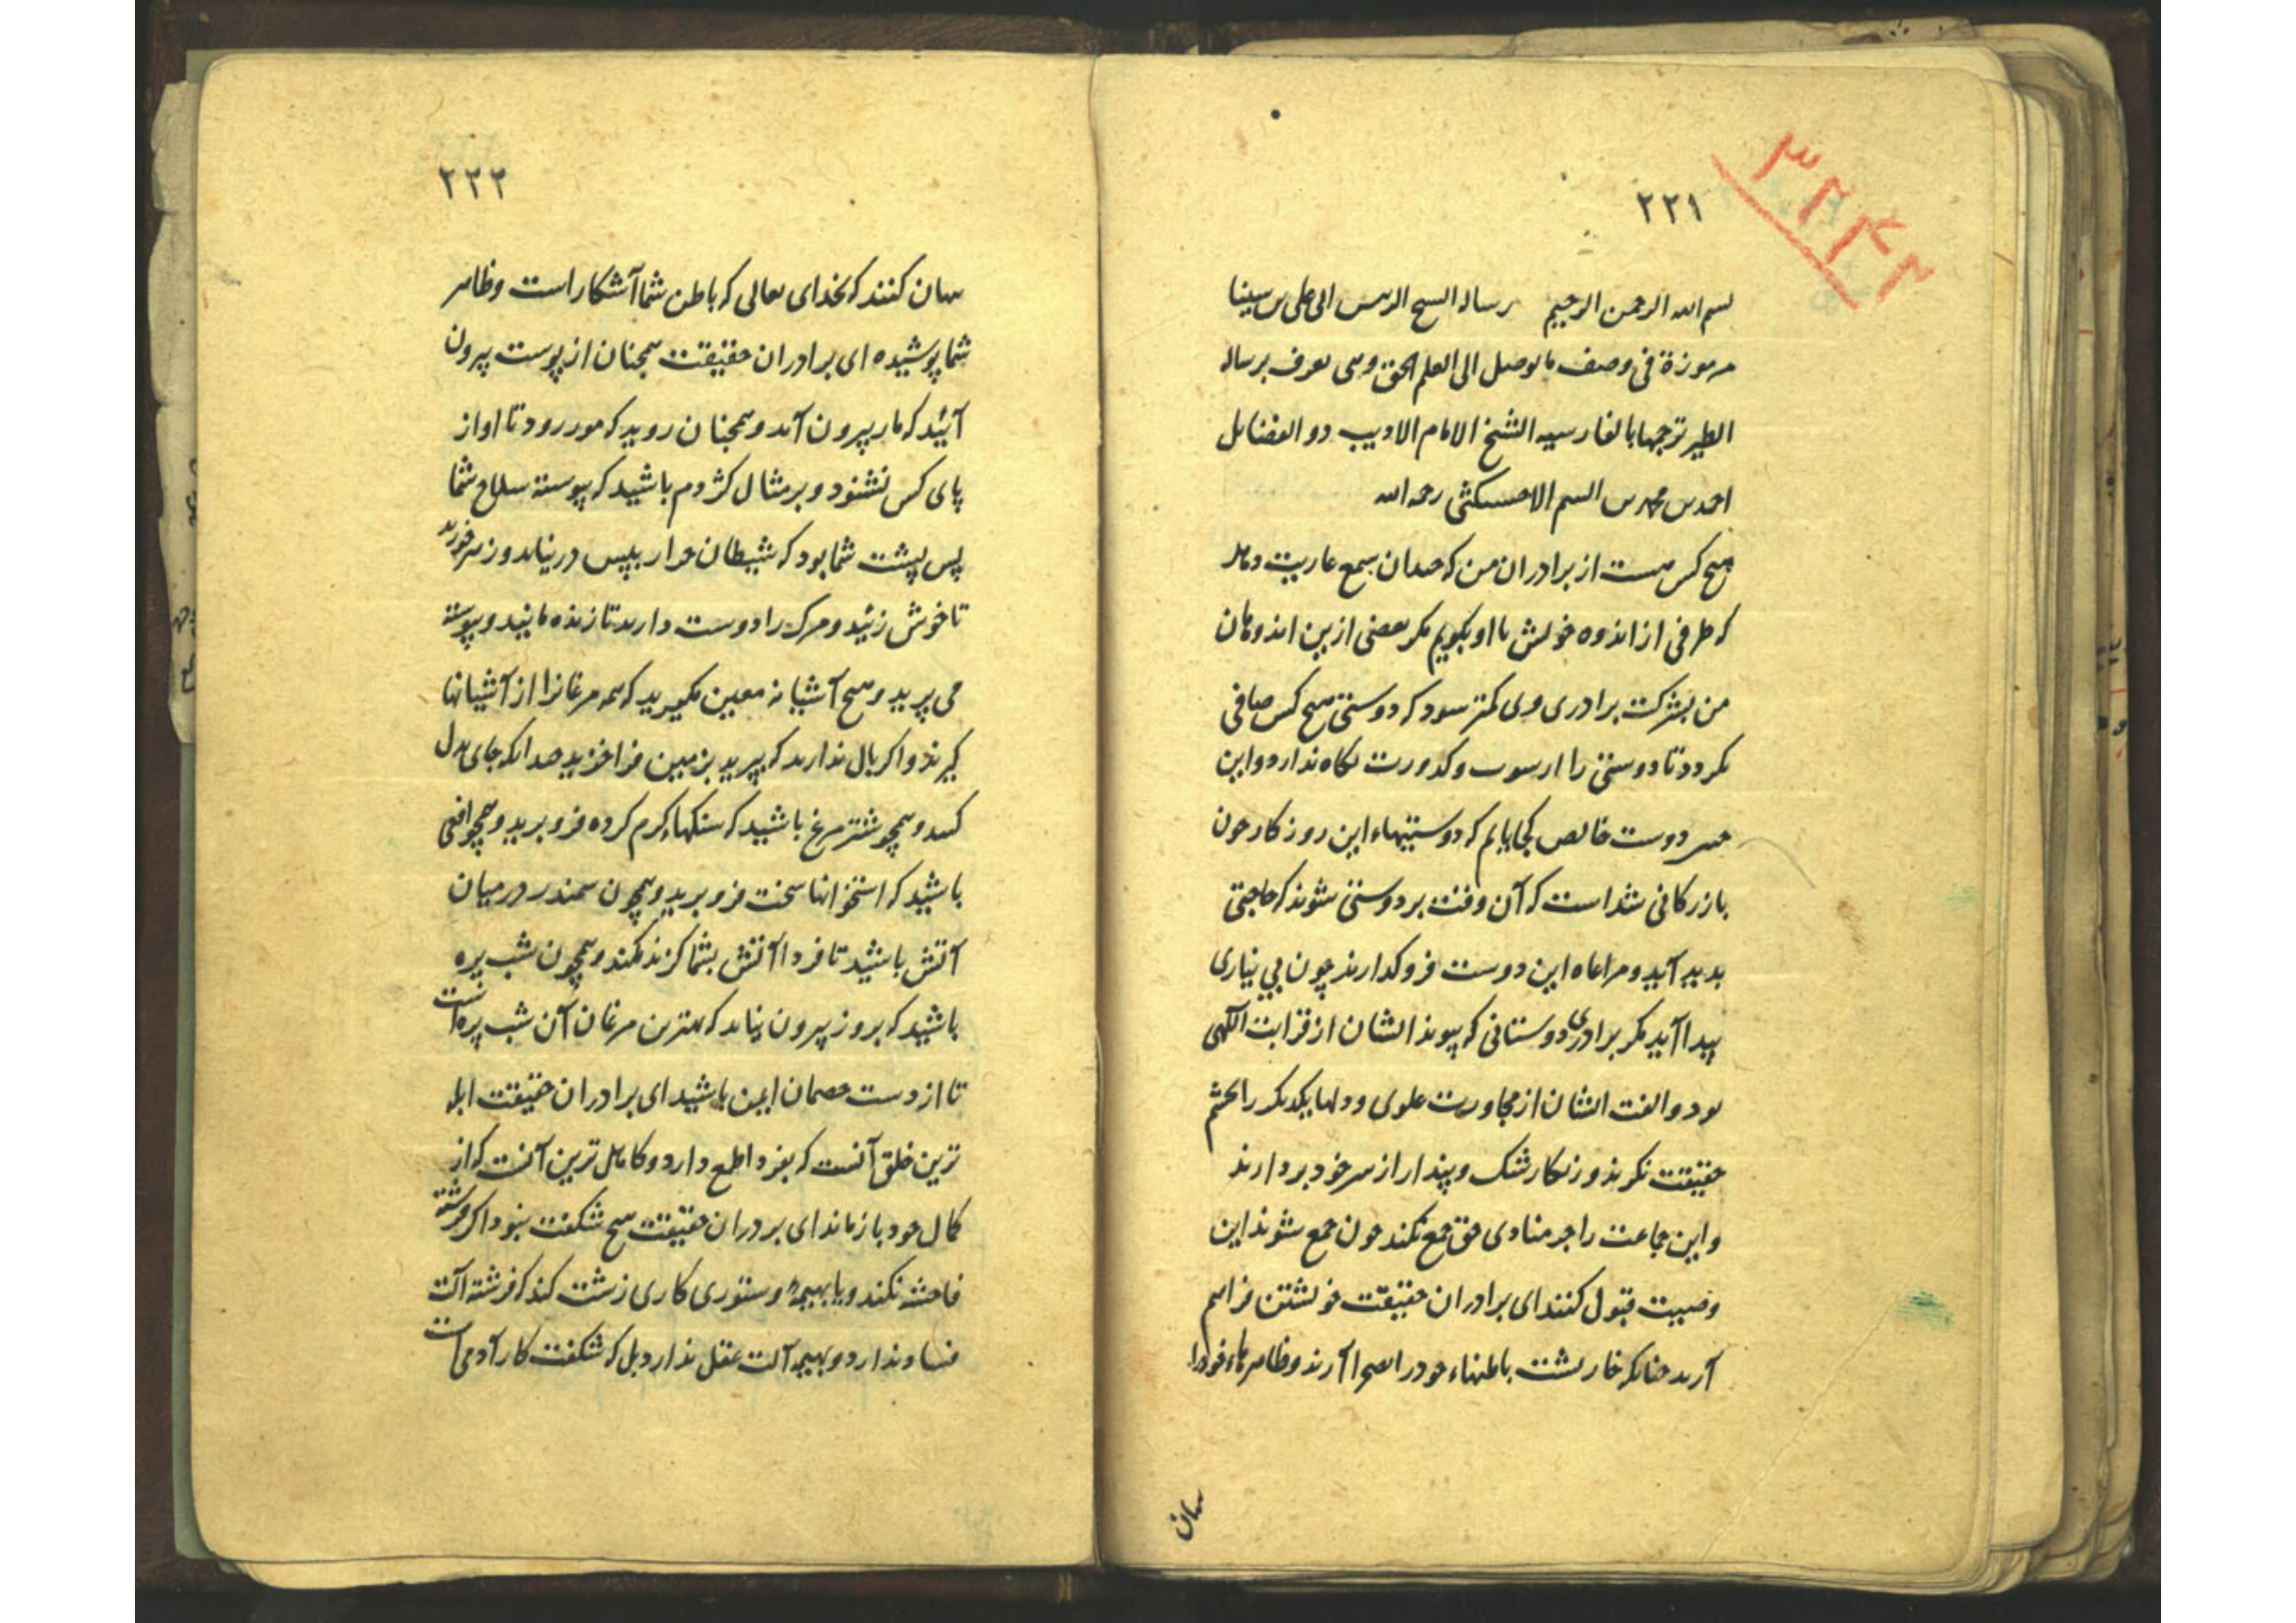 ۳۲۴۲
۲۲۱
بسم الله الرحمن الرحیم رسالة الشیخ الرئیس ابی علی بن سینا
مرموزة فی وصف ما یوصل الی العلم الحق وهی تعرف برسالة
الطیر ترجمها بالفارسیه الشیخ الامام الادیب ذو الفضایل
احمد بن محمد بن الاخسیکثی رحمه الله
هیچ کس هست از برادران من که چندان سمع عاریت دهد
که طرفی از اندوه خویش با او بگویم مگر بعضی ازین اندوهان
من بشرکت برادری وی کمتر شود که دوستی هیچ کس صافی
نگردد تا دوستی را از شوب و کدورت نگاه ندارد و این
چنین دوست خالص کجا یابم که دوستیهاء این روزگار چون
بازرگانی شداست که آن وقت بر دوستی شوند که حاجتی
پدید آید و مراعاه این دوست فروگذارند چون بی نیازی
پیدا آید مگر برادری دوستانی که پیوند ایشان از قرابت الهی
بود و الفت ایشان از مجاورت علوی و دلها یکدیگر را بچشم
حقیقت نگرند و زنگار شک و پندار از سر خود بردارند
و این جماعت را جز منادی حق جمع نکند چون جمع شوند این
وصیت قبول کنند ای برادران حقیقت خویشتن فراهم
آرید چنانکه خارپشت باطنهاء خود را بصحرا آرند و ظاهرهاء خود را
نهان
۲۲۲
نهان کنند که بخدای تعالی که باطن شما آشکار است و ظاهر
شما پوشیده ای برادران حقیقت همچنان از پوست بیرون
آئید که مار بیرون آید و همچنان روید که مور رود تا اواز
پای کس نشنود و بر مثال کژدم باشید که پیوسته سلاح شما
پس پشت شما بود که شیطان جز از پس در نیاید و زهر خورید
تا خوش زئید و مرگ را دوست دارید تا زنده مانید و پیوسته
می پرید و هیچ آشیانه معین مگیرید که همه مرغانرا از آشیانها
گیرند و اگر بال ندارید که بپرید بزمین فرا خزید چندانکه جای بدل
کنید و همچو شترمرغ باشید که سنگهاء گرم کرده فرو برید و همچو افعی
باشید که استخوانها سخت فرو برید و همچون سمندر در میان
آتش باشید تا فردا آتش بشما گزند نکند و همچون شب پره
باشید که بروز بیرون نیاید که بهترین مرغان آن شب پره است
تا از دست خصمان ایمن باشید ای برادران حقیقت ابله
ترین خلق آنست که بفردا طمع دارد و کامل ترین آنست که از
کمال خود بازماند ای بردران حقیقت هیچ شگفت نبود اگر فرشته
فاحشه نکند و یا بهیمه و ستوری کاری زشت کند که فرشته آلت
فساد ندارد و بهیمه آلت عقل ندارد بل که شگفت کار آدمی است